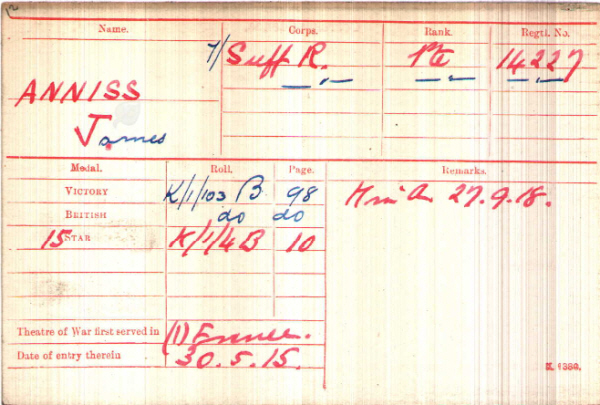 Name. Corps. Rank. Regtl. No.
7/Suff R. Pte 14227
ANNISS
James
Medal. Roll. Page. Remarks.
VICTORY K/1/103 B 98
BRITISH do do
15 STAR K/1/4B 10
27.9.18.
Theatre of War first served in (1) France.
Date of entry therein 30.5.15.
K. 1380.